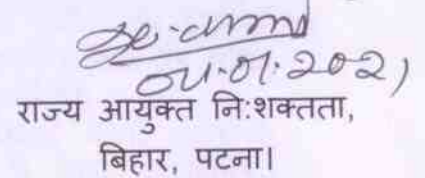 04.01.2021
राज्य आयुक्त नि:शक्तता,
बिहार, पटना।